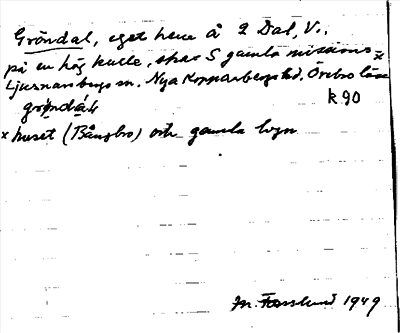 Gröndal, eget hem å 2 Dal, V.,
på en hög kulle, strax S gamla missions-x
Ljusnarsbergs sn. Nya Kopparbergs hd. Örebro län
gröndáL k 90
x huset (Bångbro) och gamla
M. Fasslund 1949